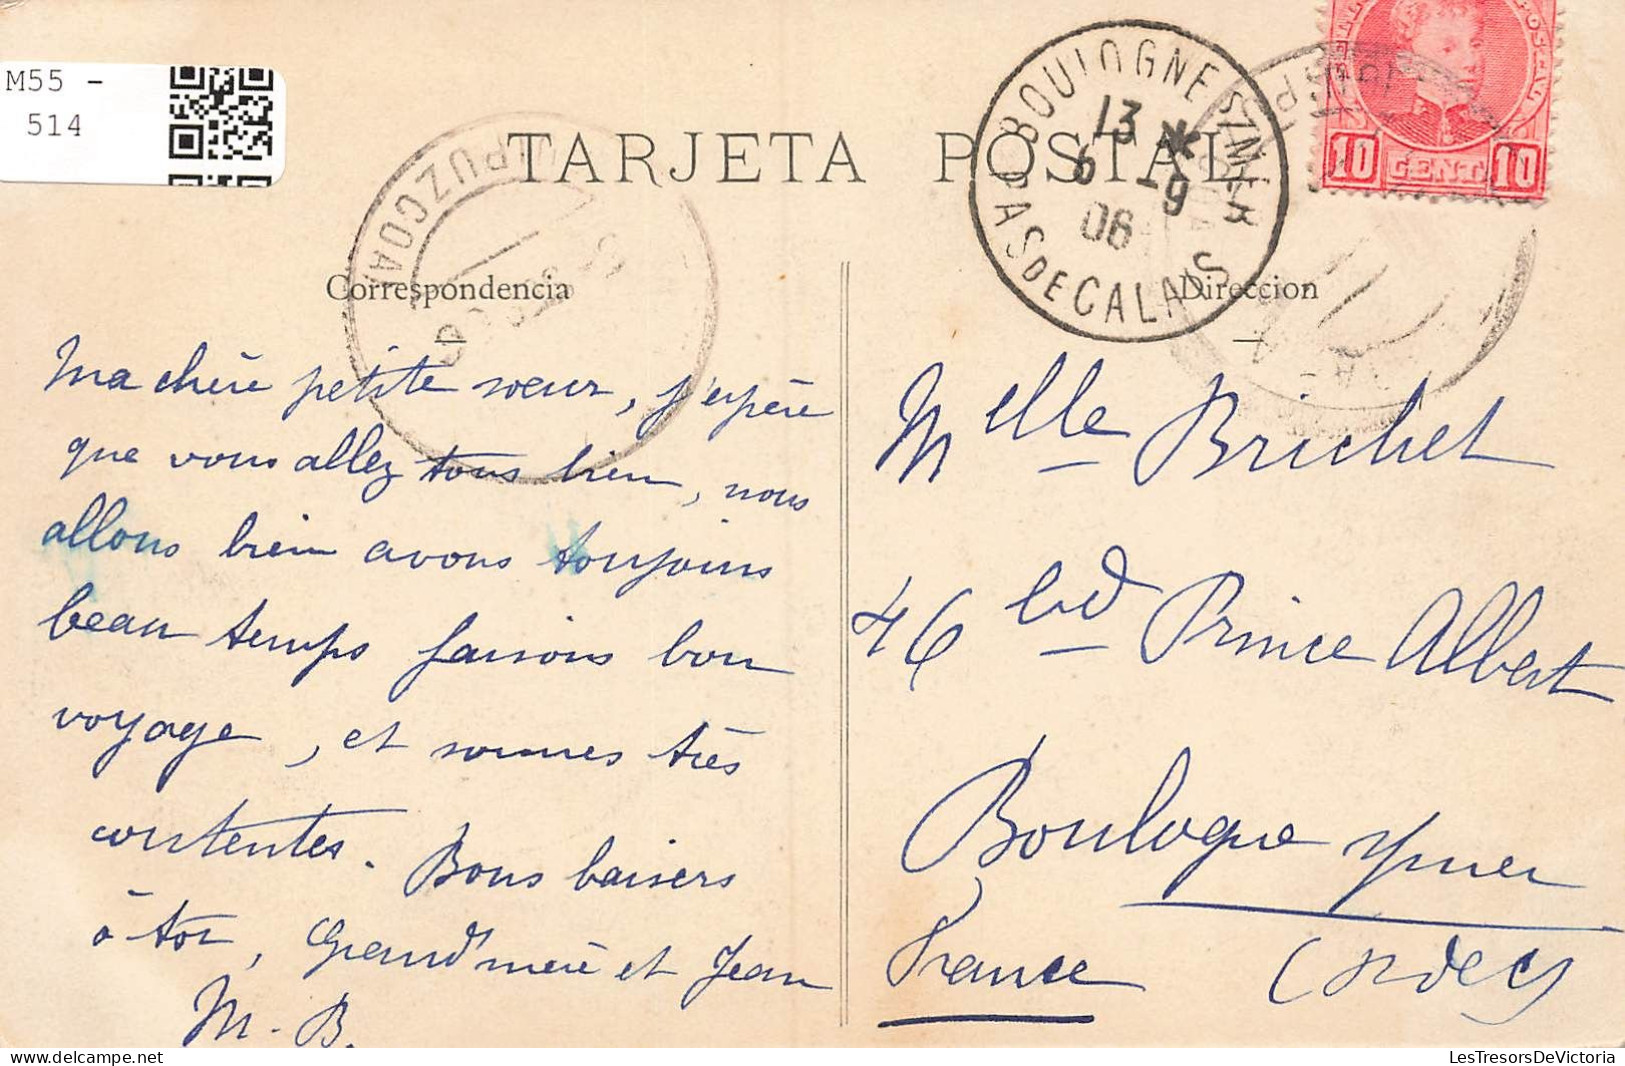 M55 -
514
TARJETA POSTAL
BOULOGNE S/MER
13 *
6 -9
06
PAS DE CALAIS
GUIPUZCOA
10 CENT 10
Correspondencia
Direccion
Ma chère petite sœur, j'espère
que vous allez tous bien, nous
allons bien avons toujours
beau temps faisons bon
voyage, et sommes très
contentes. Bons baisers
à toi, Grand'mère et Jean
M. B.
Melle Brichet
46 bd Prince Albert
Boulogne s/mer
France (P de C)
LesTresorsDeVictoria